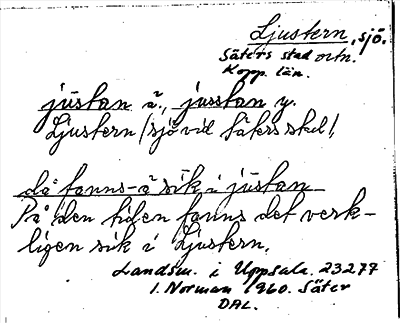 Ljustern, sjö.
Säters stad ortn.
Kopp. län.
jūstan ä., jusstan y.
Ljustern (sjö vid Säters stad)
då fanns-ä sik i jūstan
På den tiden fanns det verk-
ligen sik i Ljustern.
Landsm. i Uppsala. 23277
I. Norman 1960. Säter
DAL.